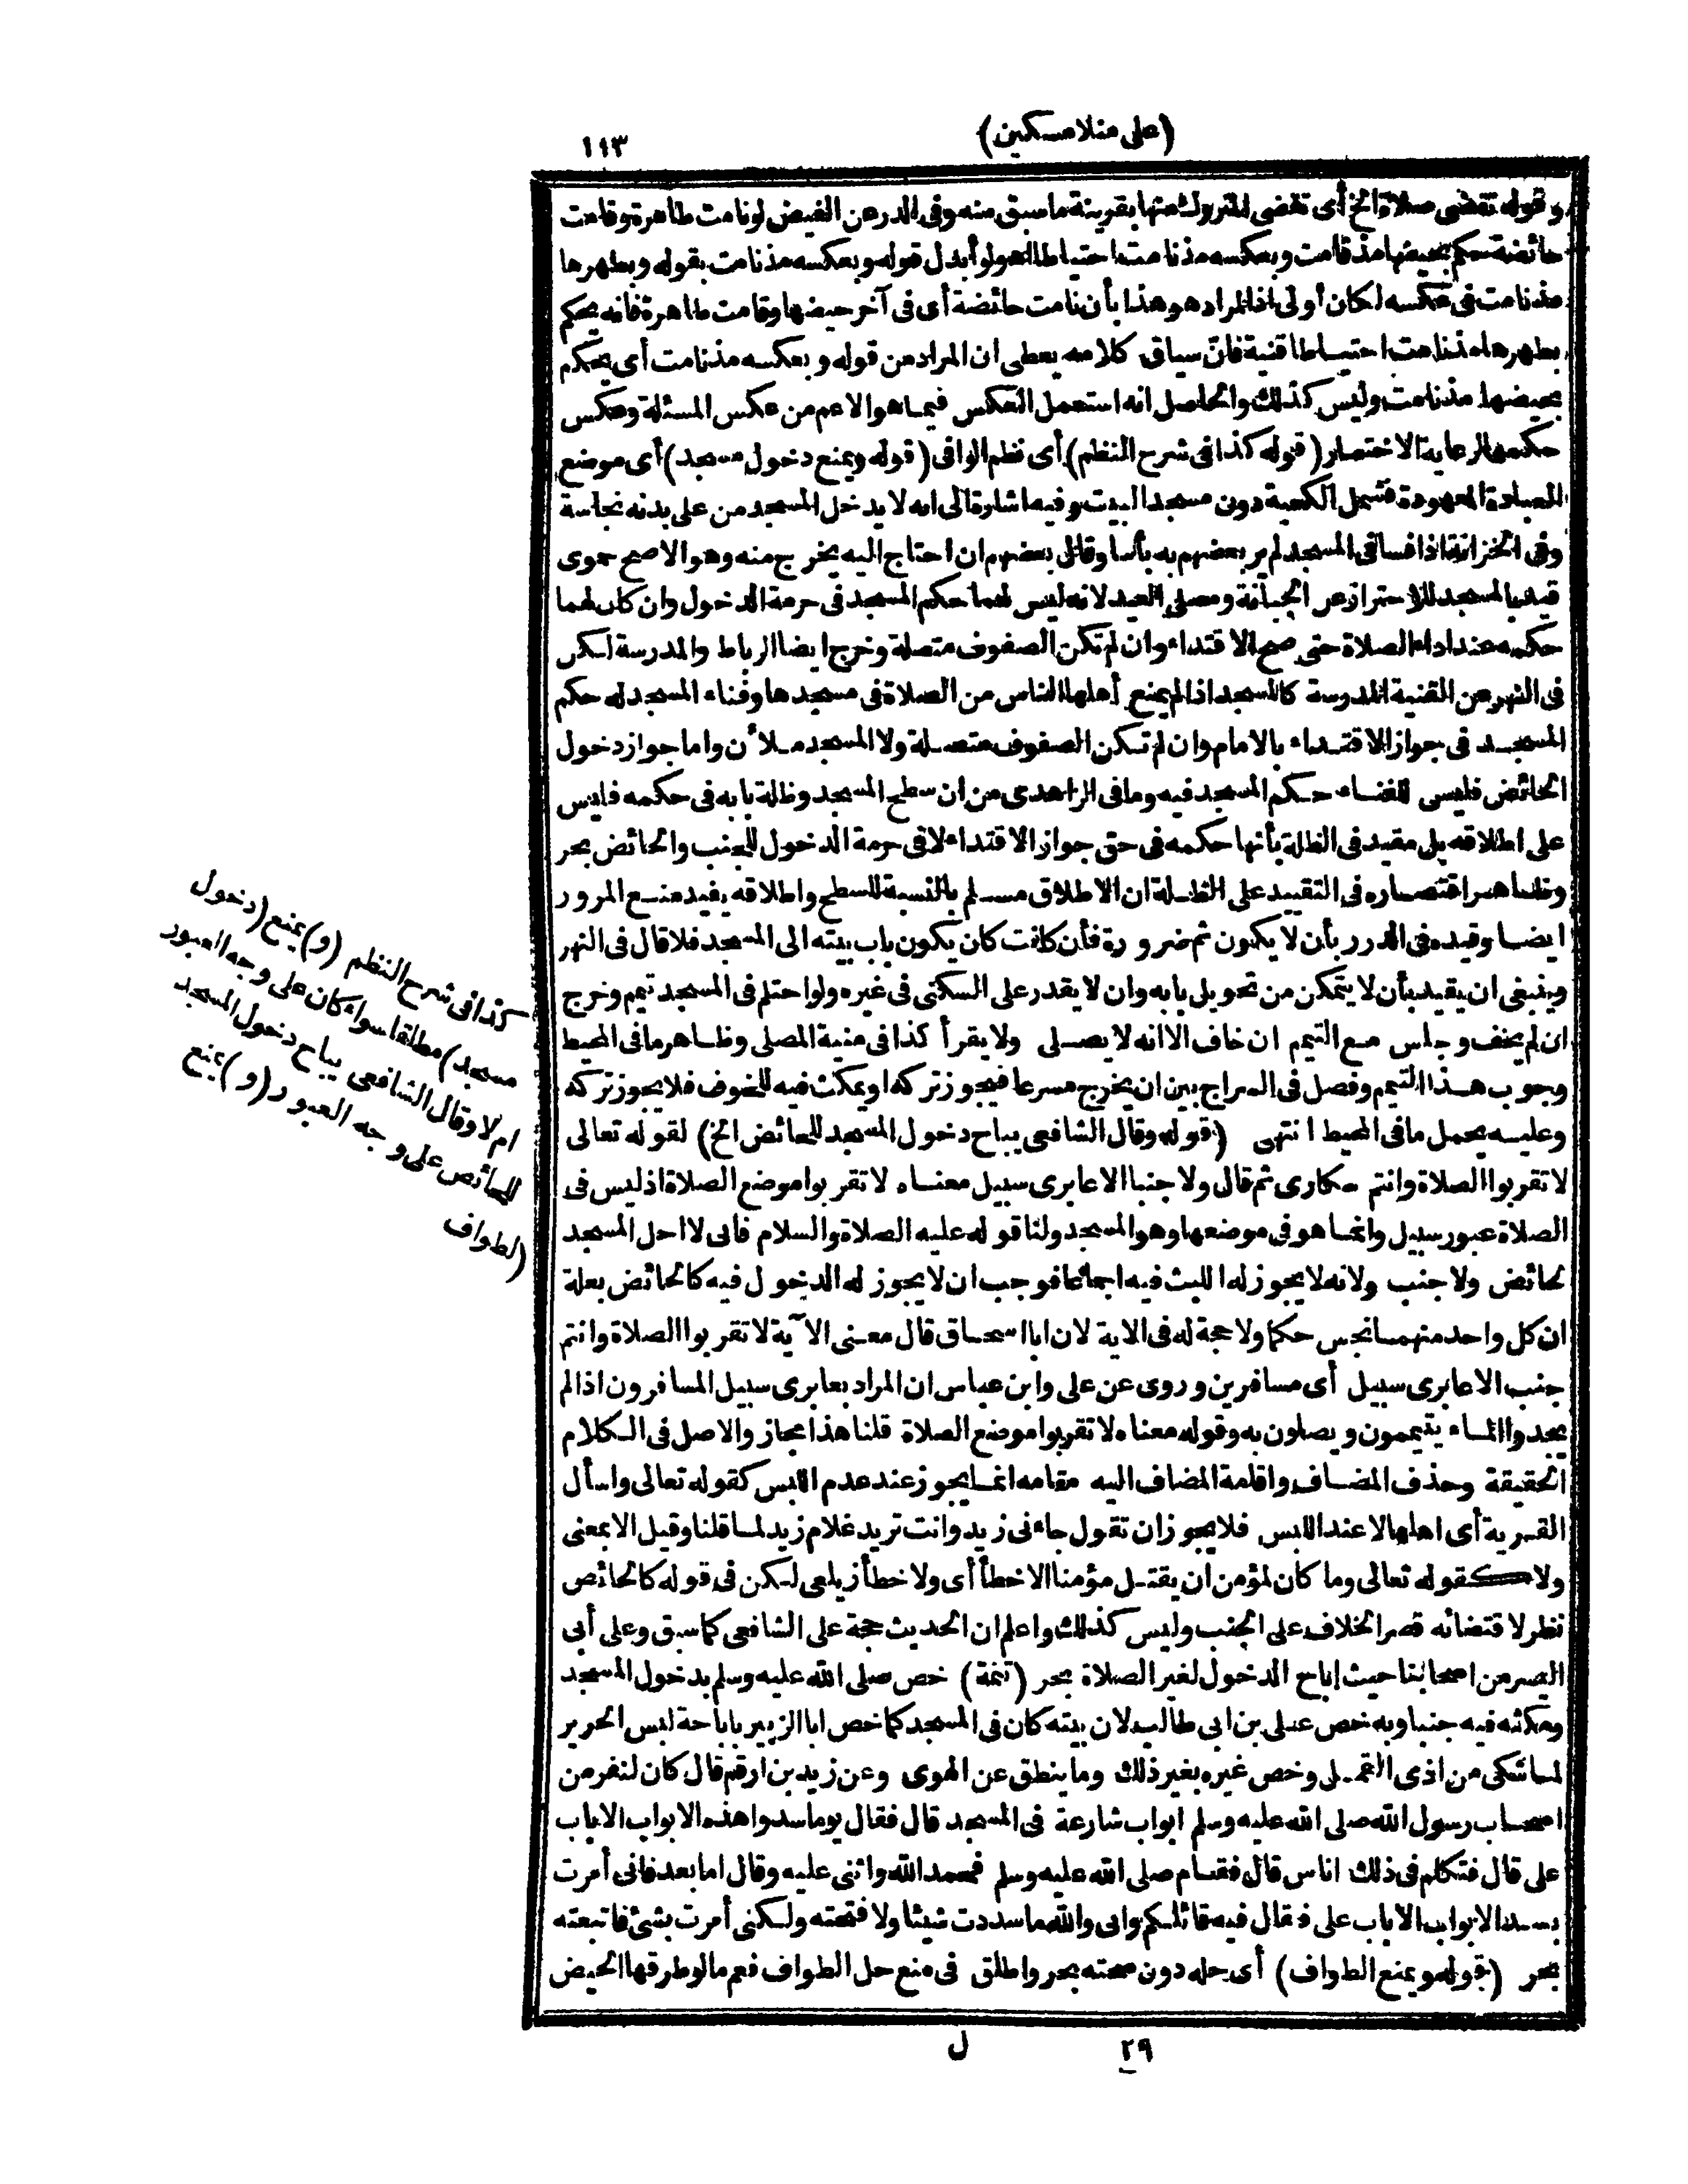 (على منلا مسكين)
١١٣
وقوله تقضى صلاة الخ أى تقضى المتروك منها بقرينة ما سبق منه وفى الدر عن الفيض لو نامت طاهرة وقامت
حائضة حكم بحيضها مذ قامت وبعكسه مذ نامت احتياطا اهـ ولو أبدل قوله وبعكسه مذ نامت بقوله وبطهرها
مذ نامت فى عكسه لكان أولى اذ المراد هو هذا بأن نامت حائضة أى فى آخر حيضها وقامت طاهرة فانه يحكم
بطهرها مذ نامت احتياطا قنية فانّ سياق كلامه يعطى ان المراد من قوله وبعكسه مذ نامت أى يحكم
بحيضها مذ نامت وليس كذلك والحاصل انه استعمل العكس فيما هو الاعم من عكس المسئلة وعكس
حكمها لرعاية الاختصار (قوله كذا فى شرح النظم) أى نظم الوافى (قوله ويمنع دخول مسجد) أى موضع
العبادة المعهودة فشمل الكعبة دون مسجد البيت وفيه اشارة الى انه لا يدخل المسجد من على بدنه نجاسة
وفى الخزانة اذا فسا فى المسجد لم ير بعضهم به بأسا وقال بعضهم ان احتاج اليه يخرج منه وهو الاصح حموى
قيد بالمسجد للاحتراز عن الجبانة ومصلى العيد لانه ليس لهما حكم المسجد فى حرمة الدخول وان كان لهما
حكمه عند اداء الصلاة حتى صح الاقتداء وان لم تكن الصفوف متصلة وخرج ايضا الرباط والمدرسة لكن
فى النهر عن القنية المدرسة كالمسجد اذا لم يمنع أهلها الناس من الصلاة فى مسجدها وفناء المسجد له حكم
المسجد فى جواز الاقتداء بالامام وان لم تكن الصفوف متصلة ولا المسجد ملأن واما جواز دخول
الحائض فليس للفناء حكم المسجد فيه وما فى الزاهدى من ان سطح المسجد وظلة بابه فى حكمه فليس
على اطلاقه بل مقيد فى الظلة بأنها حكمه فى حق جواز الاقتداء لا فى حرمة الدخول للجنب والحائض بحر
وظاهر اقتصاره فى التقييد على الظلة ان الاطلاق مسلم بالنسبة للسطح واطلاقه يفيد منع المرور
ايضا وقيده فى الدرر بأن لا يكون ثم ضرورة فأن كانت كان يكون باب بيته الى المسجد فلا قال فى النهر
وينبغى ان يقيد بأن لا يتمكن من تحويل بابه وان لا يقدر على السكنى فى غيره ولو احتلم فى المسجد تيمم وخرج
ان لم يخف وجلس مع التيمم ان خاف الا انه لا يصلى ولا يقرأ كذا فى منية المصلى وظاهر ما فى المحيط
وجوب هذا التيمم وفصل فى السراج بين ان يخرج مسرعا فيجوز تركه او يمكث فيه للخوف فلا يجوز تركه
وعليه يحمل ما فى المحيط انتهى (قوله وقال الشافعى يباح دخول المسجد للحائض الخ) لقوله تعالى
لا تقربوا الصلاة وانتم سكارى ثم قال ولا جنبا الا عابرى سبيل معناه لا تقربوا موضع الصلاة اذ ليس فى
الصلاة عبور سبيل وانما هو فى موضعها وهو المسجد ولنا قوله عليه الصلاة والسلام فانى لا احل المسجد
لحائض ولا جنب ولانه لا يجوز له اللبث فيه اجماعا فوجب ان لا يجوز له الدخول فيه كالحائض بعلة
ان كل واحد منهما نجس حكما ولا حجة له فى الاية لان ابا اسحاق قال معنى الآية لا تقربوا الصلاة وانتم
جنب الا عابرى سبيل أى مسافرين وروى عن على وابن عباس ان المراد بعابرى سبيل المسافرون اذا لم
يجدوا الماء يتيممون ويصلون به وقوله معناه لا تقربوا موضع الصلاة قلنا هذا مجاز والاصل فى الكلام
الحقيقة وحذف المضاف واقامة المضاف اليه مقامه انما يجوز عند عدم اللبس كقوله تعالى واسأل
القرية أى اهلها لا عند اللبس فلا يجوز ان تقول جاءنى زيد وانت تريد غلام زيد لما قلنا وقيل الا بمعنى
ولا كقوله تعالى وما كان لمؤمن ان يقتل مؤمنا الا خطأ أى ولا خطأ زيلعى لكن فى قوله كالحائض
نظر لاقتضائه قصر الخلاف على الجنب وليس كذلك واعلم ان الحديث حجة على الشافعى كما سبق وعلى أبى
اليسر من اصحابنا حيث اباح الدخول لغير الصلاة بحر (تتمة) خص صلى الله عليه وسلم بدخول المسجد
ومكثه فيه جنبا وبه خص على بن ابى طالب لان بيته كان فى المسجد كما خص ابا الزبير باباحة لبس الحرير
لما شكى من اذى القمل وخص غيره بغير ذلك وما ينطق عن الهوى وعن زيد بن ارقم قال كان لنفر من
اصحاب رسول الله صلى الله عليه وسلم ابواب شارعة فى المسجد قال فقال يوما سدوا هذه الابواب الا باب
على قال فتكلم فى ذلك اناس قال فقام صلى الله عليه وسلم فحمد الله واثنى عليه وقال اما بعد فانى أمرت
بسد الابواب الا باب على فقال فيه قائلكم وانى والله ما سددت شيئا ولا فتحته ولكنى أمرت بشئ فاتبعته
بحر (قوله ويمنع الطواف) أى حله دون صحته بحر واطلق فى منع حل الطواف فعم ما لو طرقها الحيض
كذا فى شرح النظم (و) يمنع (دخول
مسجد) مطلقا سواء كان على وجه العبور
ام لا وقال الشافعى يباح دخول المسجد
للحائض على وجه العبور (و) يمنع
(الطواف
٢٩
ل